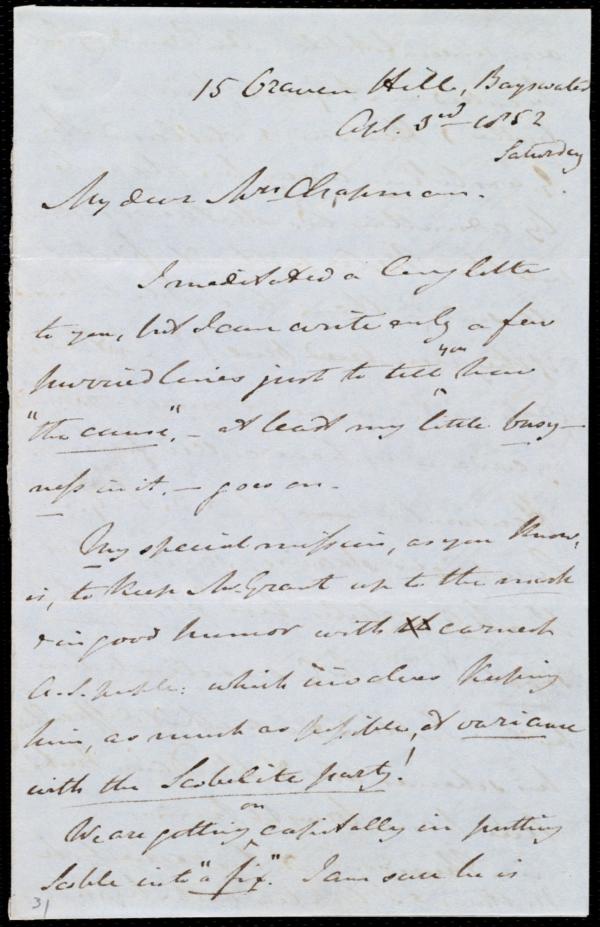 15 Craven Hill, Bayswater
Apl. 3rd 1852
Saturday
My dear Mrs Chapman.
I meditated a long letter
to you, but I can write only a few
hurried lines just to tell you how
"the cause", – at least my little busy-
ness in it, – goes on –
My special mission, as you know,
is, to keep Mr Grant up to the mark
& in good humor with earnest
A.S. people: which involves keeping
him, as much as possible, at variance
with the Scobelite party!
We are getting on capitally in putting
Scoble into "a fix". I am sure he is
31